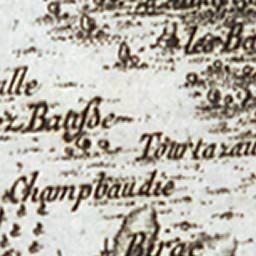 Les Ba
alle
z Bausse
Tourtarau
Champbaudie
Birac